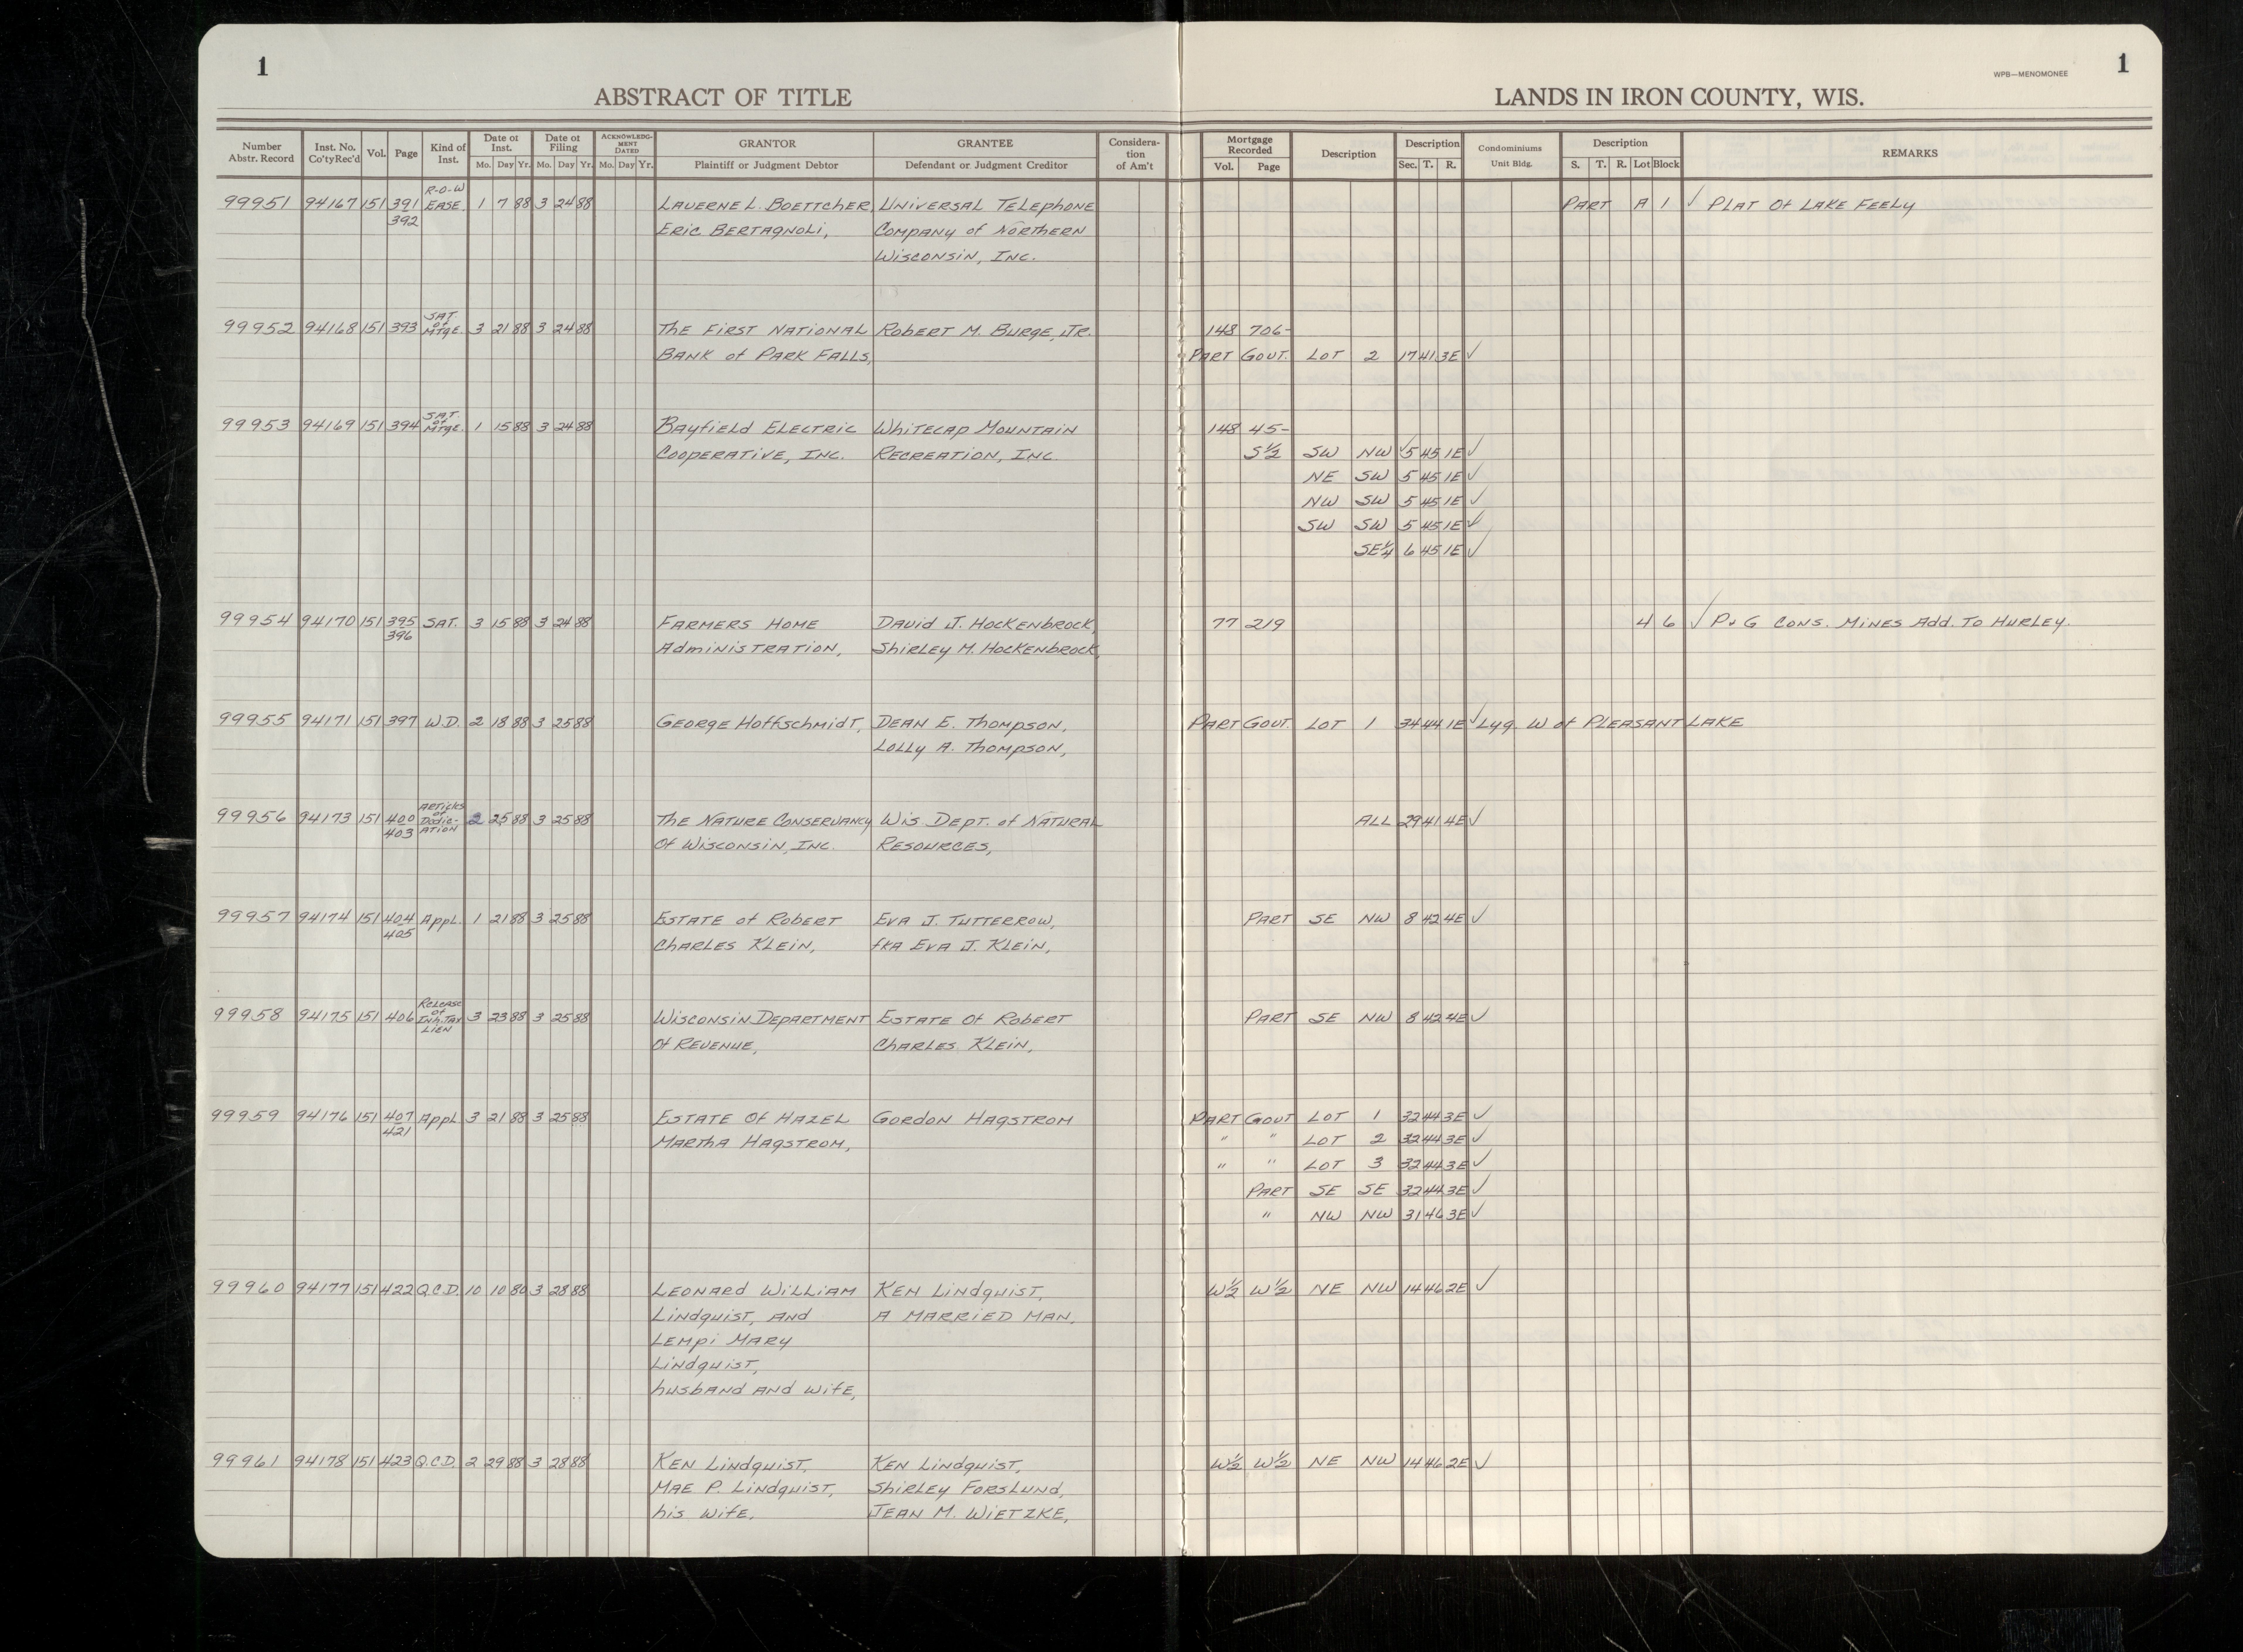 1
1
WPB—MENOMONEE
ABSTRACT OF TITLE
LANDS IN IRON COUNTY, WIS.
Number Abstr. Record Inst. No. Co'tyRec'd Vol. Page Kind of Inst. Date of Inst. Mo. Day Yr. Date of Filing Mo. Day Yr. ACKNOWLEDGMENT DATED Mo. Day Yr. GRANTOR Plaintiff or Judgment Debtor GRANTEE Defendant or Judgment Creditor Consideration of Am't Mortgage Recorded Vol. Page Description Description Sec. T. R. Condominiums Unit Bldg. Description S. T. R. Lot Block REMARKS
R-O-W
99951 94167 151 391 EASE. 1 7 88 3 24 88 LAVERNE L. BOETTCHER, UNIVERSAL TELEPHONE PART A 1 ✓ PLAT Of LAKE FEELY
392 ERIC BERTAGNOLI, COMPANY of NORTHERN
WISCONSIN, INC.
SAT.
of
99952 94168 151 393 MTGE. 3 21 88 3 24 88 THE FIRST NATIONAL ROBERT M. BURGE, JR. 148 706-
BANK of PARK FALLS, PART GOVT. LOT 2 17 41 3E ✓
SAT.
of
99953 94169 151 394 MTGE. 1 15 88 3 24 88 BAYFIELD ELECTRIC WHITECAP MOUNTAIN 148 45-
COOPERATIVE, INC. RECREATION, INC. S½ SW NW ✓ 5 45 1E ✓
NE SW 5 45 1E ✓
NW SW 5 45 1E ✓
SW SW 5 45 1E ✓
SE¼ 6 45 1E ✓
99954 94170 151 395 SAT. 3 15 88 3 24 88 FARMERS HOME DAVID J. HOCKENBROCK, 77 219 4 6 ✓ P v G CONS. MINES Add. TO HURLEY.
396 AdMINISTRATION, SHIRLEY M. HOCKENBROCK,
99955 94171 151 397 W.D. 2 18 88 3 25 88 GEORGE HOFFSCHMIDT, DEAN E. THOMPSON, PART GOVT LOT 1 34 44 1E ✓ Lyg. W of PLEASANT LAKE
LOLLY A. THOMPSON,
ARTICLES
of
99956 94173 151 400 DEDIC- 2 25 88 3 25 88 THE NATURE CONSERVANCY WIS DEPT. of NATURAL ALL 29 41 4E ✓
403 ATION Of WISCONSIN, INC. RESOURCES,
99957 94174 151 404 APPL. 1 21 88 3 25 88 ESTATE of ROBERT EVA J. TUTTERROW, PART SE NW 8 42 4E ✓
405 CHARLES KLEIN, fKA EVA J. KLEIN,
RELEASE
of
99958 94175 151 406 INH. TAX 3 23 88 3 25 88 WISCONSIN DEPARTMENT ESTATE Of ROBERT PART SE NW 8 42 4E ✓
LIEN
Of REVENUE, CHARLES KLEIN,
99959 94176 151 407 APPL 3 21 88 3 25 88 ESTATE Of HAZEL GORDON HAGSTROM PART GOVT LOT 1 32 44 3E ✓
421 MARTHA HAGSTROM, " " LOT 2 32 44 3E ✓
" " LOT 3 32 44 3E ✓
PART SE SE 32 44 3E ✓
" NW NW 31 46 3E ✓
99960 94177 151 422 Q.C.D. 10 10 80 3 28 88 LEONARD WILLIAM KEN LINDQUIST, W½ W½ NE NW 14 46 2E ✓
LINDQUIST, AND A MARRIED MAN,
LEMPI MARY
LINDQUIST,
husband AND WIFE,
99961 94178 151 423 Q.C.D. 2 29 88 3 28 88 KEN LINDQUIST, KEN LINDQUIST, W½ W½ NE NW 14 46 2E ✓
MAE P. LINDQUIST, SHIRLEY FORSLUND,
his WIFE, JEAN M. WIETZKE,